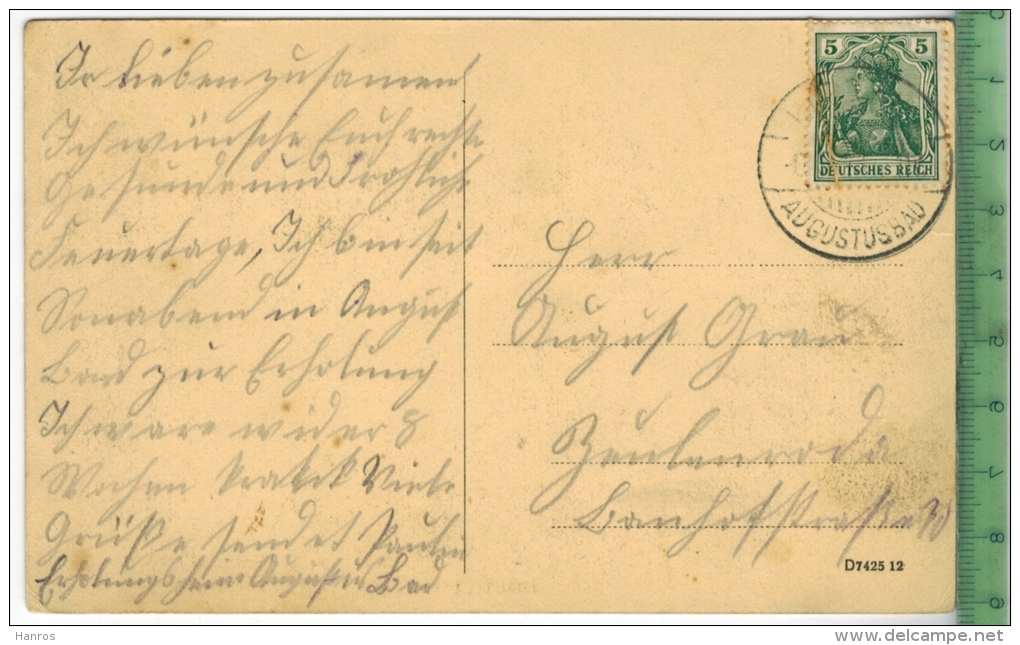 Ir Lieben zusamen!
Ich wünsche Euch rechte
gesunde und Fröhliche
Feuertage, Ich bin seit
Sonabend in August
Bard zur Erholung
Ich ware wider 8
Wochen krank Viele
Grüße sendet Paulin
Erholungsheim Augustus Bad
5 5
DEUTSCHES REICH
AUGUSTUSBAD
Herr
August Grau
Zeulenroda
Banhofstraße
D7425 12
Hanros
www.delcampe.net